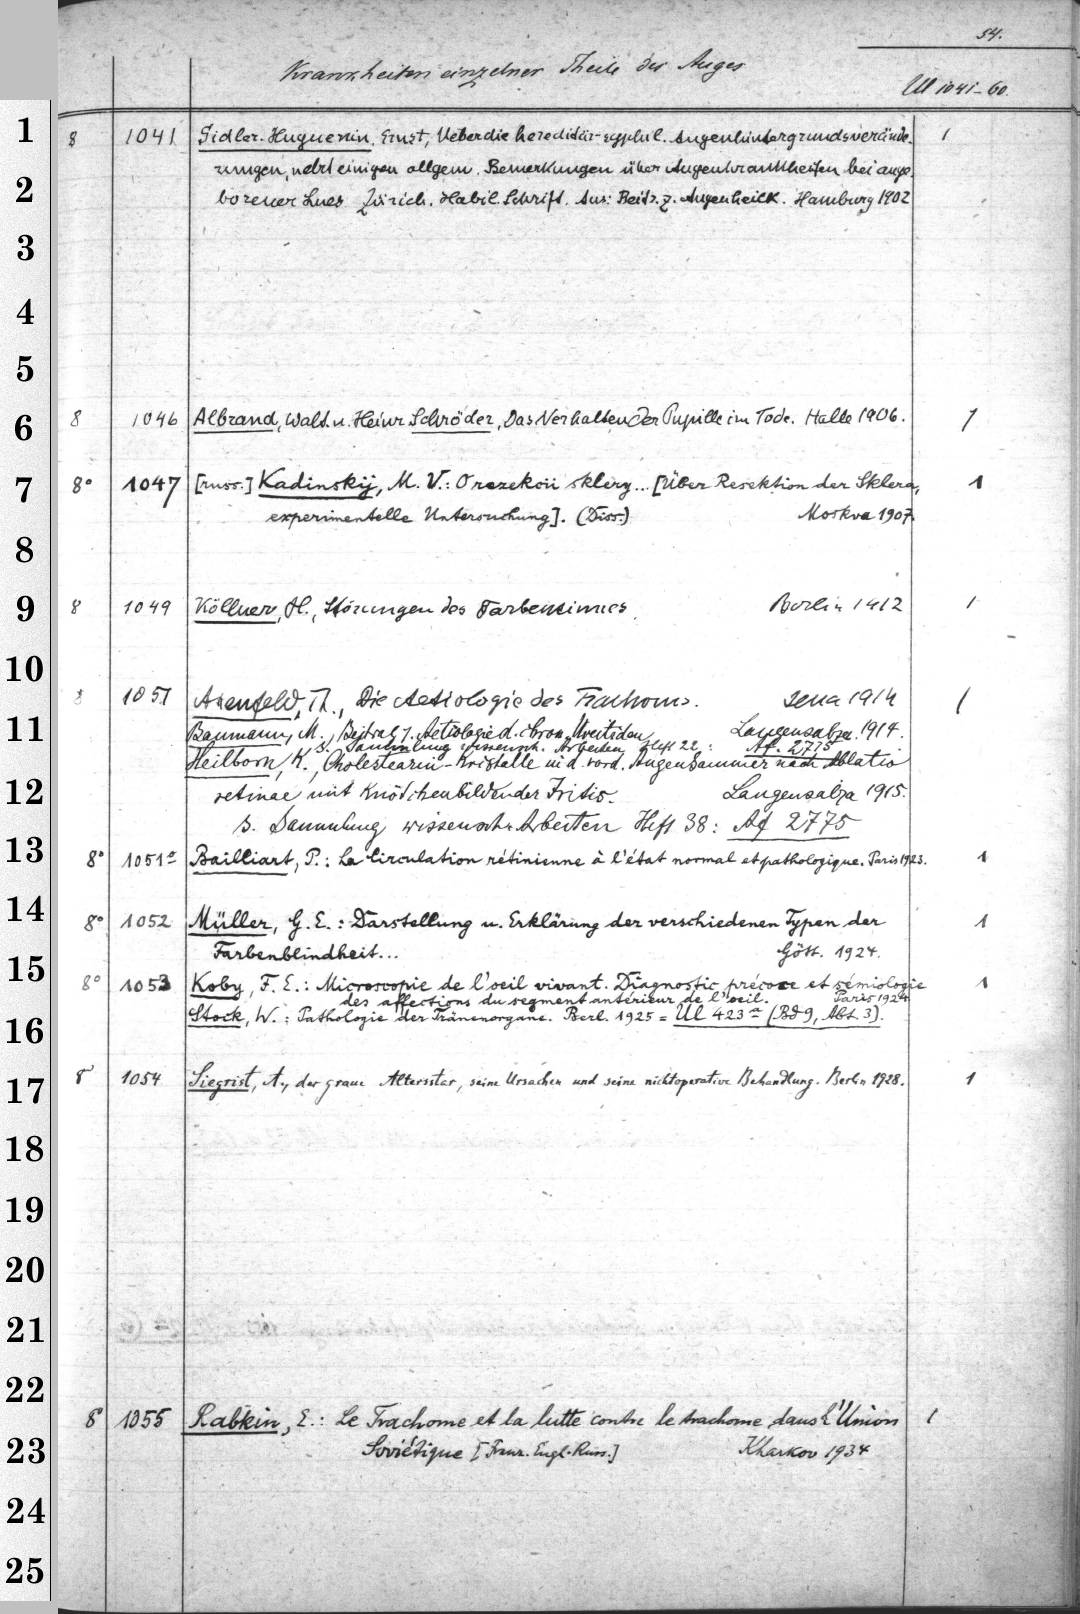 54.
Krankheiten einzelner Theile des Auges
Ul 1041-60.
1 8 1041 Sidler-Huguenin, Ernst, Ueber die hereditär-syphil. Augenhintergrundsverände- 1
rungen, nebst einigen allgem. Bemerkungen über Augenkrankheiten bei ange-
2 borener Lues Zürich. Habil. Schrift. Aus: Beitr. z. Augenheilk. Hamburg 1902
3
4
5
6 8 1046 Albrand, Walt. u. Heinr. Schröder, Das Verhalten der Pupille im Tode. Halle 1906. 1
7 8° 1047 [russ.] Kadinskij, M. V.: O rezekcii sklery... [Über Resektion der Sklera, 1
experimentelle Untersuchung]. (Diss.) Moskva 1907.
8
9 8 1049 Köllner, H., Störungen des Farbensinnes. Berlin 1912 1
10
8 1051 Axenfeld, Th., Die Aetiologie des Trachoms. Jena 1914 1
11 Baumann, M., Beitrag z. Aetiologie d. chron. Uveitiden Langensalza 1914.
s. Sammlung wissensch. Arbeiten, Heft 22: Af. 2775
Heilborn, K., Cholestearin-Kristalle in d. vord. Augenkammer nach Ablatio
12 retinae mit Knötchenbildender Iritis. Langensalza 1915.
s. Sammlung wissensch. Arbeiten Heft 38: Af 2775
13 8° 1051a Bailliart, P.: La Circulation rétinienne à l'état normal et pathologique. Paris 1923. 1
14 8° 1052 Müller, G. E.: Darstellung u. Erklärung der verschiedenen Typen der 1
Farbenblindheit... Gött. 1924.
15 8° 1053 Koby, F. E.: Microscopie de l'oeil vivant. Diagnostic précoce et sémiologie 1
des affections du segment antérieur de l'oeil. Paris 1924
16 Stock, W.: Pathologie der Tränenorgane. Berl. 1925 = Ul 423a (Bd 9, Abt. 3).
17 8 1054 Siegrist, A., der graue Altersstar, seine Ursachen und seine nichtoperative Behandlung. Berlin 1928. 1
18
19
20
21
22
8 1055 Rabkin, E.: Le Trachome et la lutte contre le trachome dans l'Union 1
23 Soviétique [Franz. Engl. Russ.] Kharkov 1934
24
25